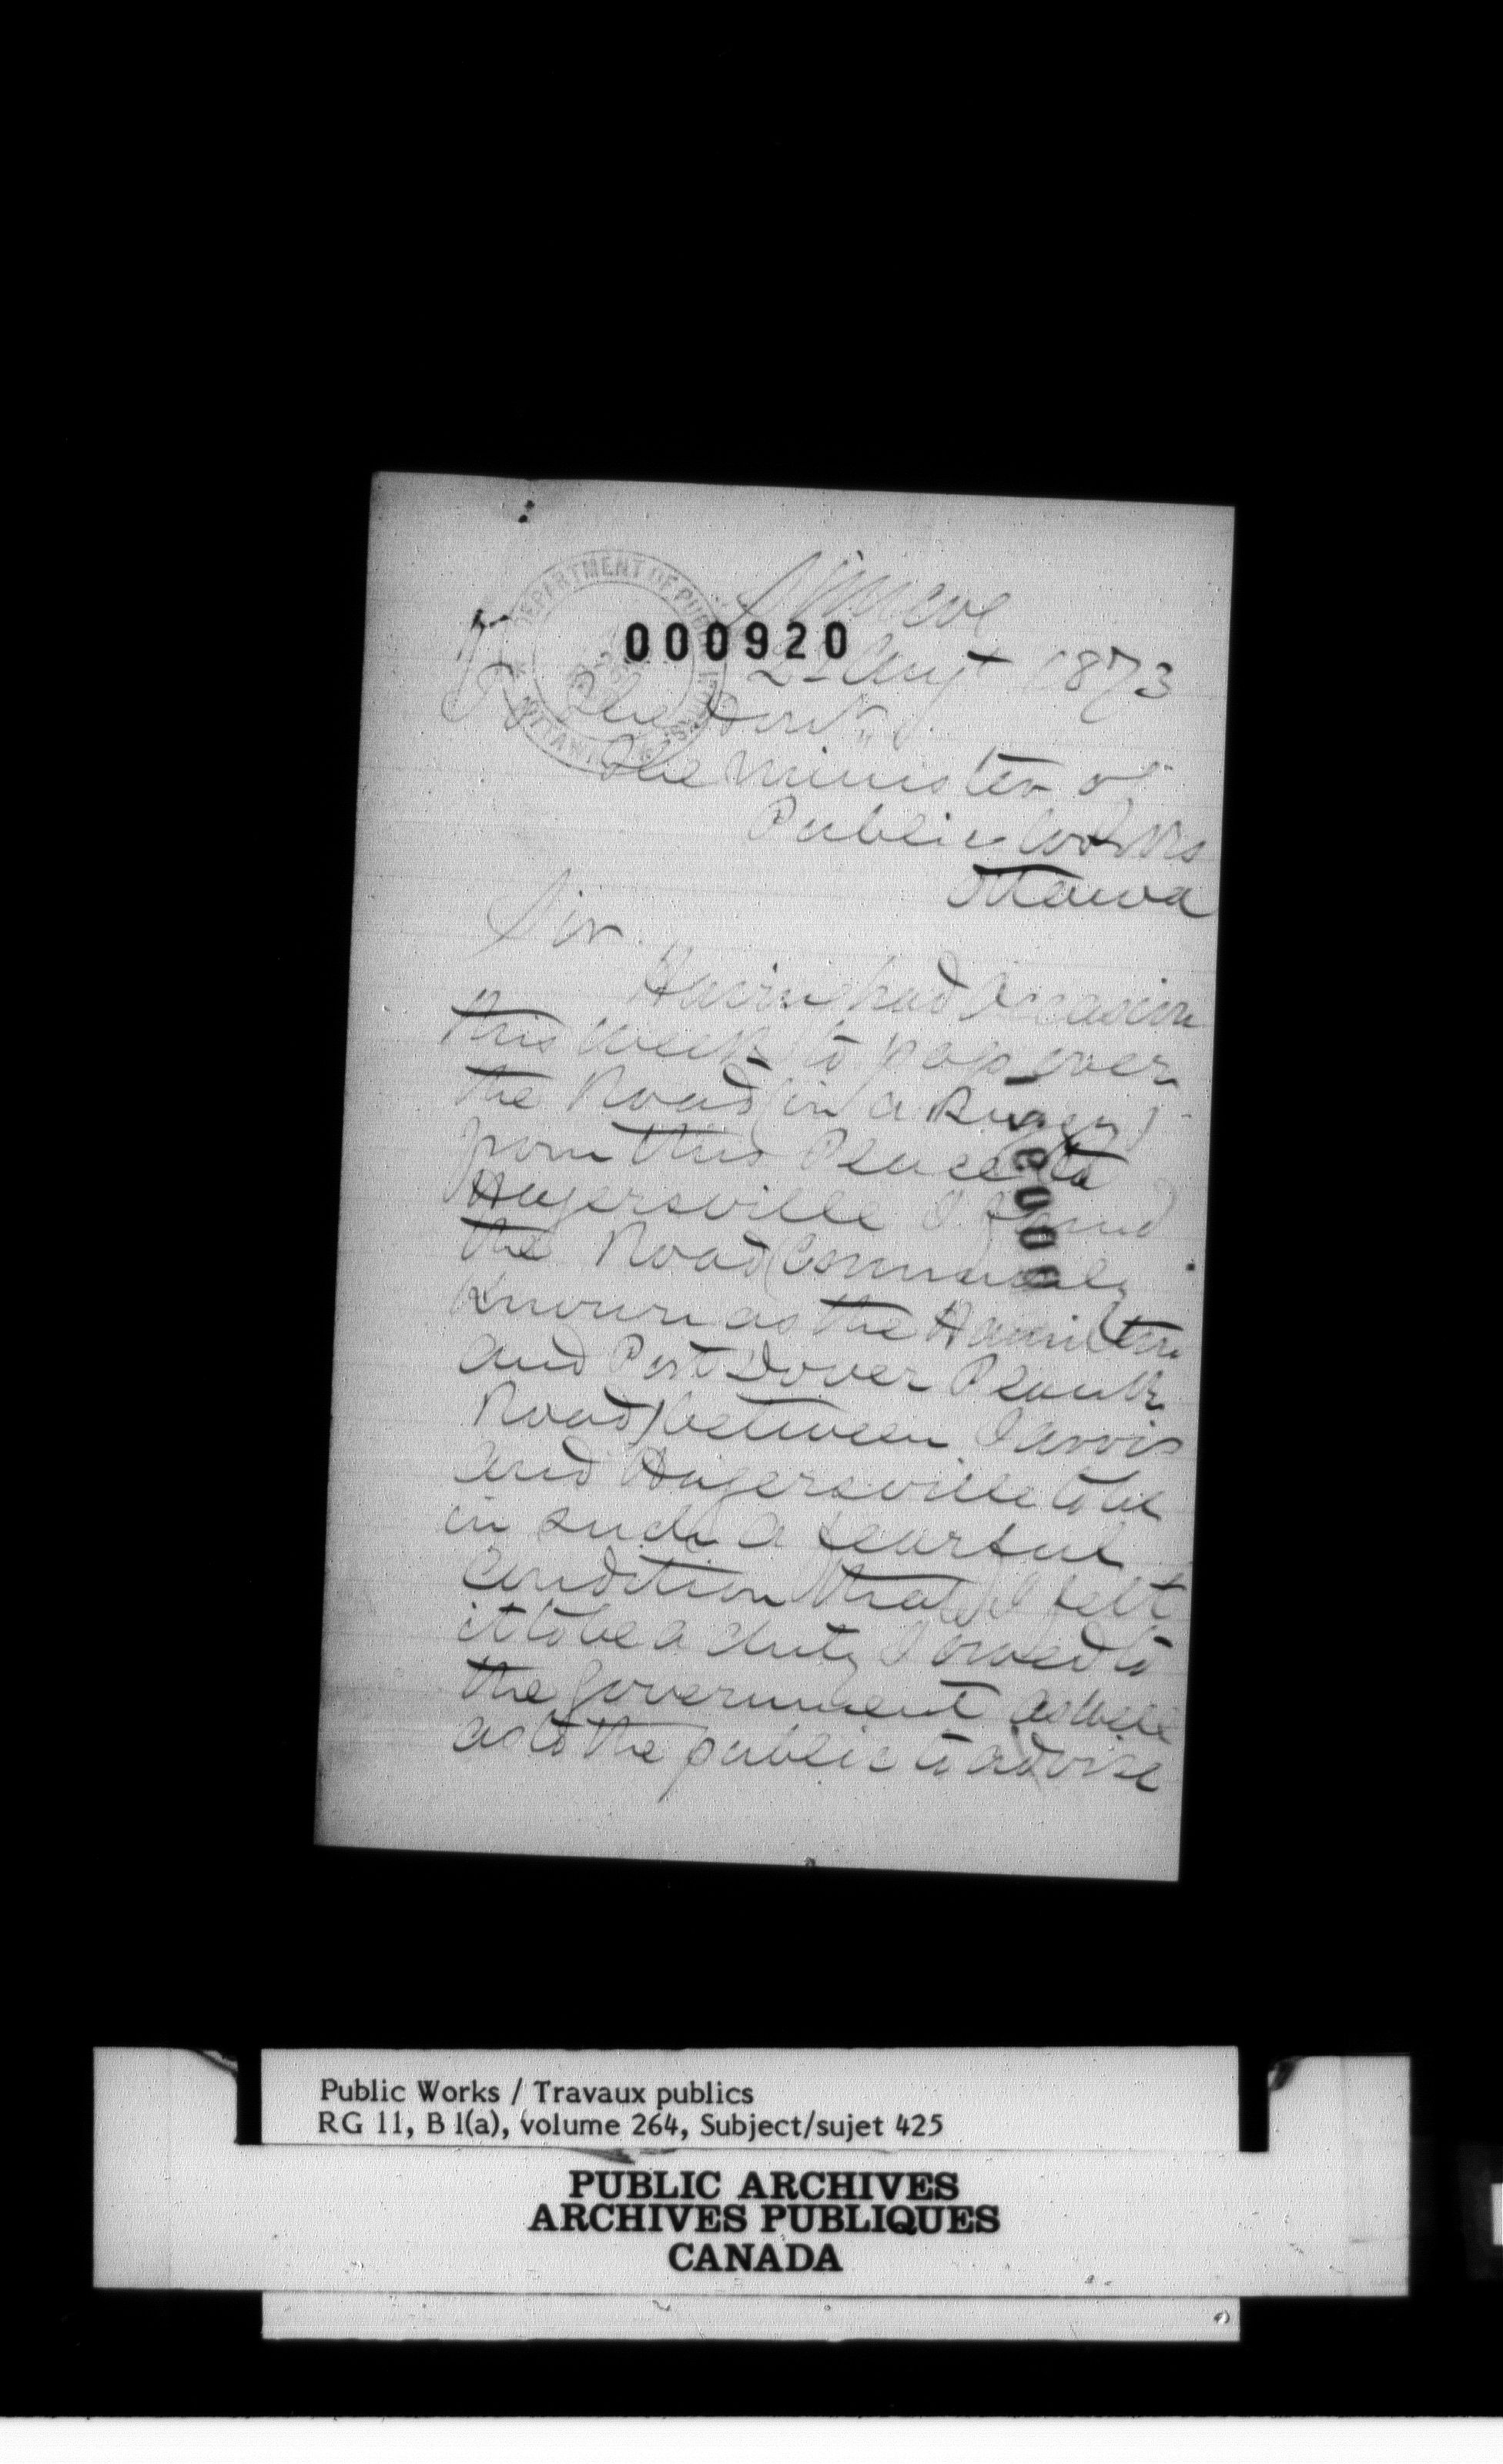 Simcoe
000920
DEPARTMENT OF PUBLIC WORKS
OTTAWA
Augt 1873
To The Honl
The Minister of
Public Works
Ottawa
Sir
Having had Occasion
this Week to pass over
the Road (in a Buggy)
from this Place to
Hagersville I found
the Road (Commonly
Known as the Hamilton
and Port Dover Plank
Road) between Jarvis
and Hagersville to be
in such a fearful
Condition that I felt
it to be a duty I owed to
the Government as well
as to the public to advise
Public Works / Travaux publics
RG 11, B 1(a), volume 264, Subject/sujet 425
PUBLIC ARCHIVES
ARCHIVES PUBLIQUES
CANADA